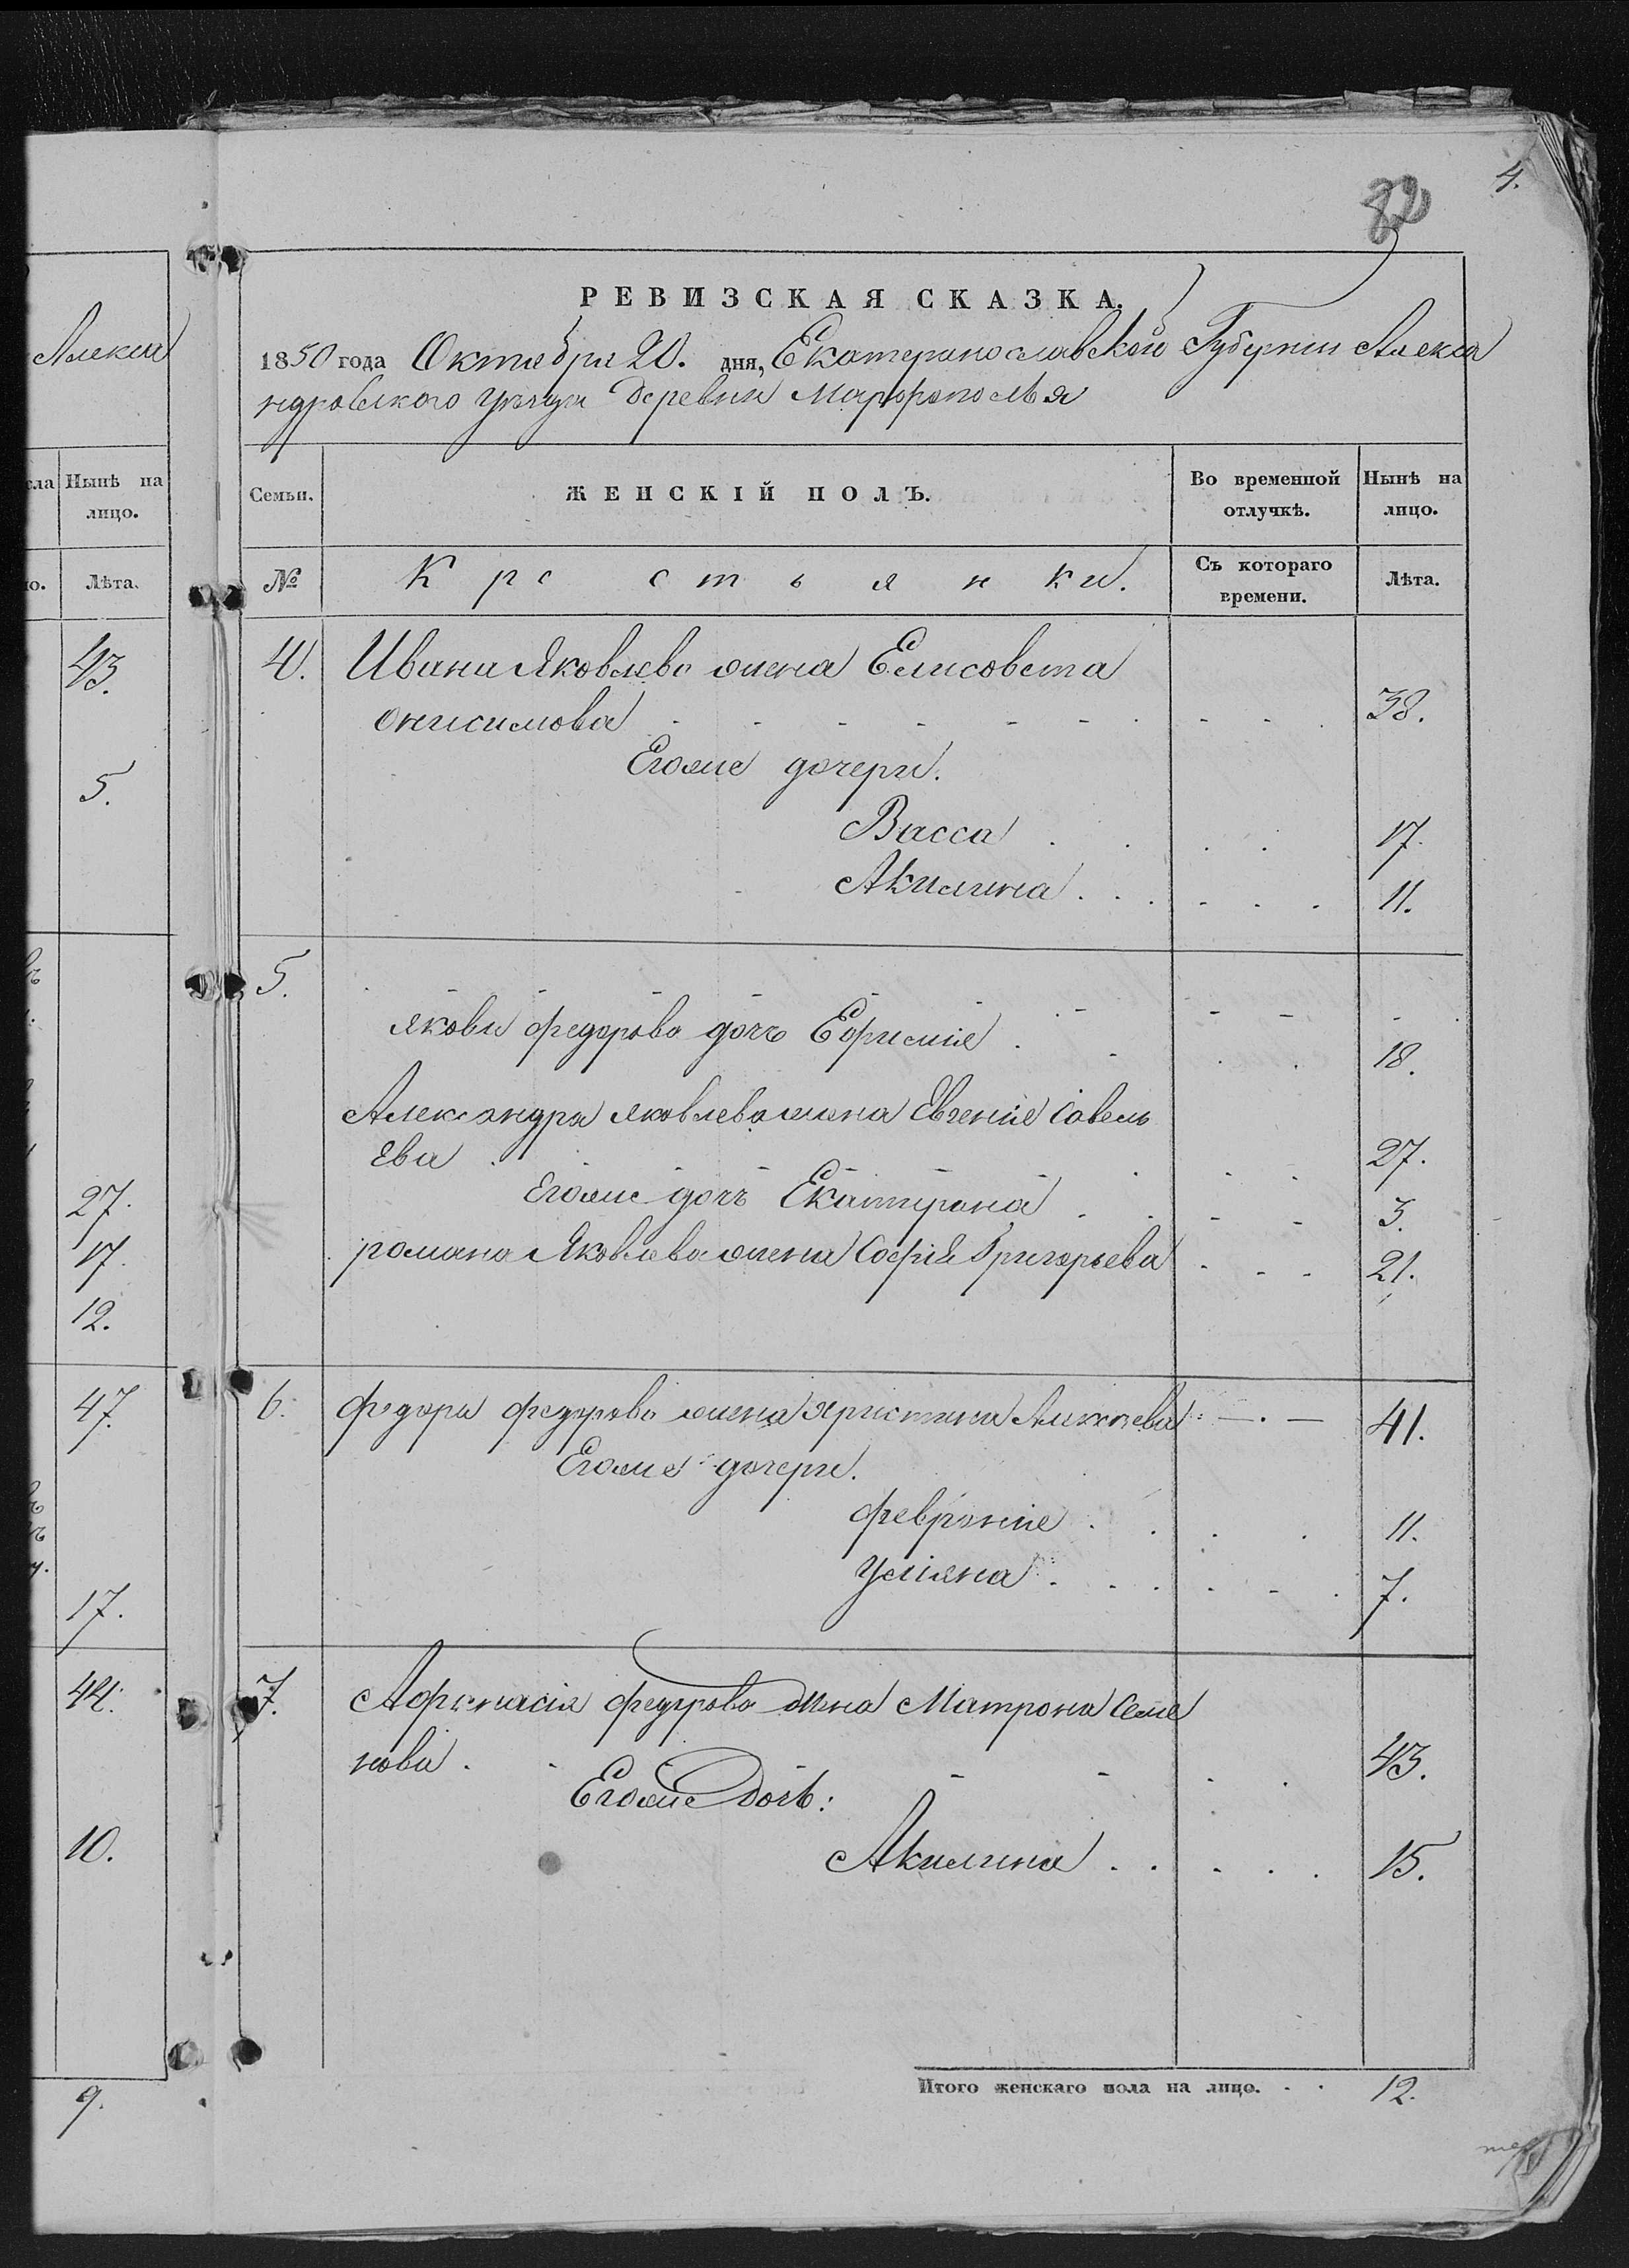 4.
Алекса
Нынѣ на
лицо.
Лѣта.
43.
5.
27.
17.
12.
47.
17.
44.
10.
9.
РЕВИЗСКАЯ СКАЗКА.
1850 года Октября 20. дня, Екатеринославской Губернии Алекса
ндровского уѣзда Деревни Марфополья
Семьи. ЖЕНСКІЙ ПОЛЪ. Во временной отлучкѣ. Нынѣ на лицо.
№ Крестьянки. Съ котораго времени. Лѣта.
4. Ивана Яковлева жена Елисовета
Онисимова 38.
Егоже дочери.
Васса 17.
Акилина 11.
5.
Якова Федорова дочъ Ефиміе 18.
Александра Яковлева жена Евгеніе Савель
ева 27.
Егоже дочъ Екатерина 3.
Романа Яковлева жена Софія Григорьева 21.
6. Федора Федорова жена Христина Алексѣева 41.
Егоже дочери.
Февроніе 11.
Уліяна 7.
7. Афанасія Федорова жена Матрона Семе
нова 43.
Егоже дочь:
Акилина 15.
Итого женскаго пола на лицо. 12.